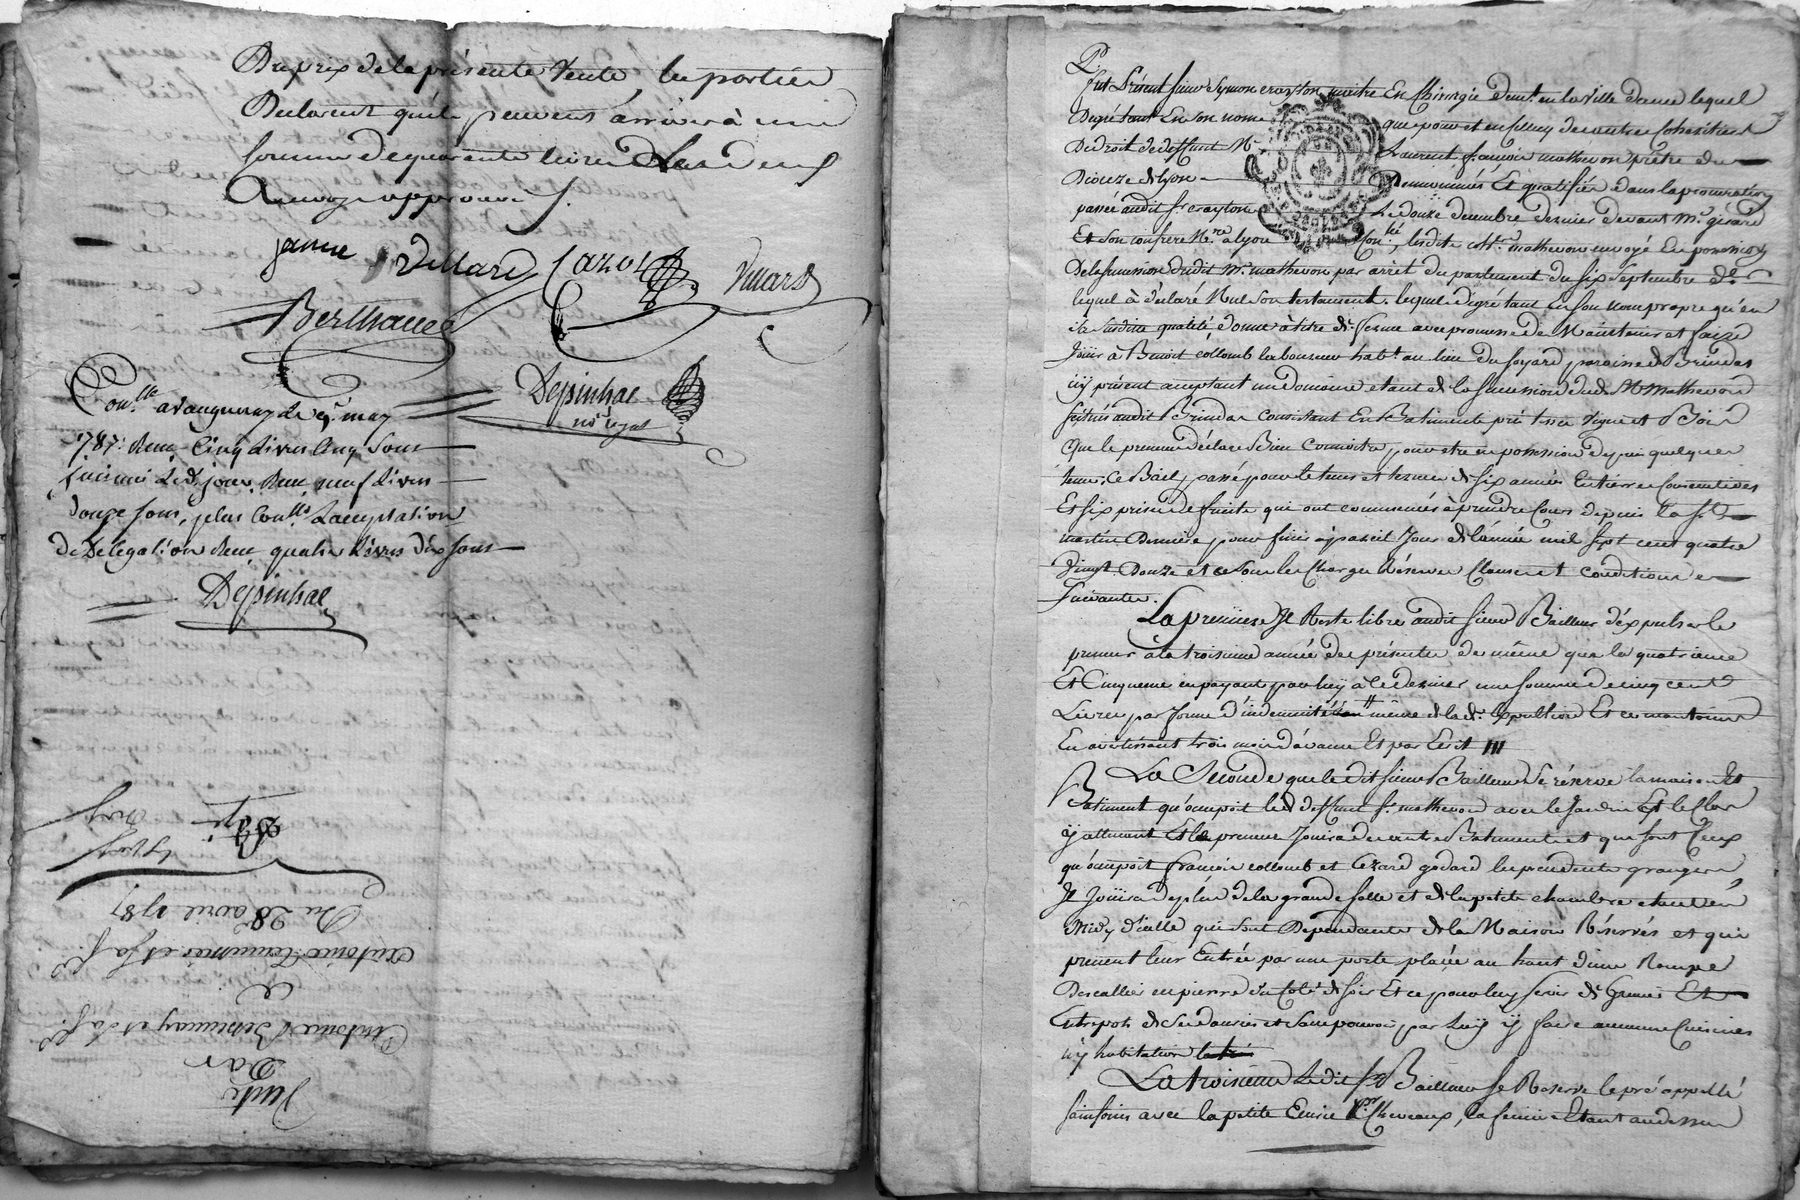 Du prix de la présente Vente, les parties
Declarent qu'ils peuvent arriver à une
somme de quarante livres
approuvé
janne Villard Cazot Villard
Berthaud
Depinhac
no.re royal
Con.lle a vaugneray le may
1787. Reçu Cinq Livres Cinq Sous
Reçu neuf Livres
douze sous, plus Con.llé L'acceptation
de Delegation Reçu quatre Livres dix sous
Depinhac
Vente
Par
Antoine et sa f.e
à
Antoine et sa f.e
Du 28 avril 1787
Fut Présent sieur Symon crayton maitre En Chirurgie demt. en la Ville lequel
Degré tant En son nom que pour et en celluy de ses autres Cohéritiers
De droit de deffunt Mre Laurent françois mathevon prêtre du
Dioceze de lyon Denommés Et qualifiés dans la procuration
passée audit Sr. crayton Le douze decembre dernier devant Me. girard
Et son confrere Nres à lyon lesdits mathevon envoyé En possession
De la succession dudit Mre mathevon par arrêt du parlement du six septembre dr.
lequel à déclaré Nul son testament, lequel degré tant en son nom propre qu'en
sa susditte qualité, donne à titre de ferme avec promesse de Maintenir et faire
Joüir à Benoit collomb laboureur habt. au lieu du foyard, paroisse de Brindas
icy présent acceptant un domaine etant de la succession dud. Sr Mathevon
scitué audit Brindas Consistant En Batiments pré terre vigne et Bois
Que le preneur déclare Bien Connoitre, pour etre en possession depuis quelques
tems, Ce Bail passé pour le tems et terme de six années Entierres Consecutives
Et six prises de fruits qui ont commencés à prendre Cours depuis la St.
martin Derniere, pour finir à pareil Jour de l'année mil sept cent quatre
vingt Douze et ce sous les Charges Réserves Clauses et Conditions
suivantes.
La premiere Il Reste libre audit sieur Bailleur d'expulser le
preneur à la troisieme année des présentes de même que la quatrieme
Et Cinquieme en payant par luy à ce dernier une somme de cinq cent
Livres par forme d'indemnité même de la d. Expultion Et ce
En avertissant trois mois d'avance Et par Ecrit
La Seconde que le dit sieur Bailleur se réserve la maison Et
Batiment qu'occupoit led deffunt Sr. mathevon avec le Jardin Et le Clos
y attenant Et le preneur Jouira des autres Batiments et qui sont Ceux
qu'occupoit françois collomb et Cezard godard les précedents grangers,
Il Jouira de plus de la grande salle et de la petite chambre étant en
midy d'icelle qui sont Dependantes de la Maison Réservés et qui
prennent leur Entrée par une porte placée au haut d'une Rampe
D'escallier en pierre du Coté de soir Et ce pour luy servir de Grenier Et
Entrepots de ses danrées et sans pouvoir par Luy y faire aucunne Cuisine
ny habitation
La troisieme Ledit Sr Bailleur se Reserve le pré appellé
sainfoins avec la petite Ecurie pr. Chevaux, la fenière Etant au dessus